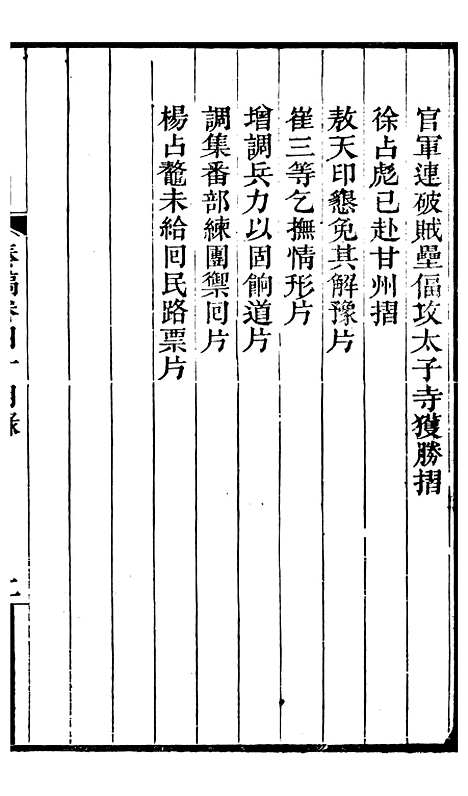 官軍連破賊壘偪攻太子寺獲勝摺
徐占彪已赴甘州摺
敖天印懇免其解豫片
崔三等乞撫情形片
增調兵力以固餉道片
調集番部練團禦囘片
楊占鼇未給囘民路票片